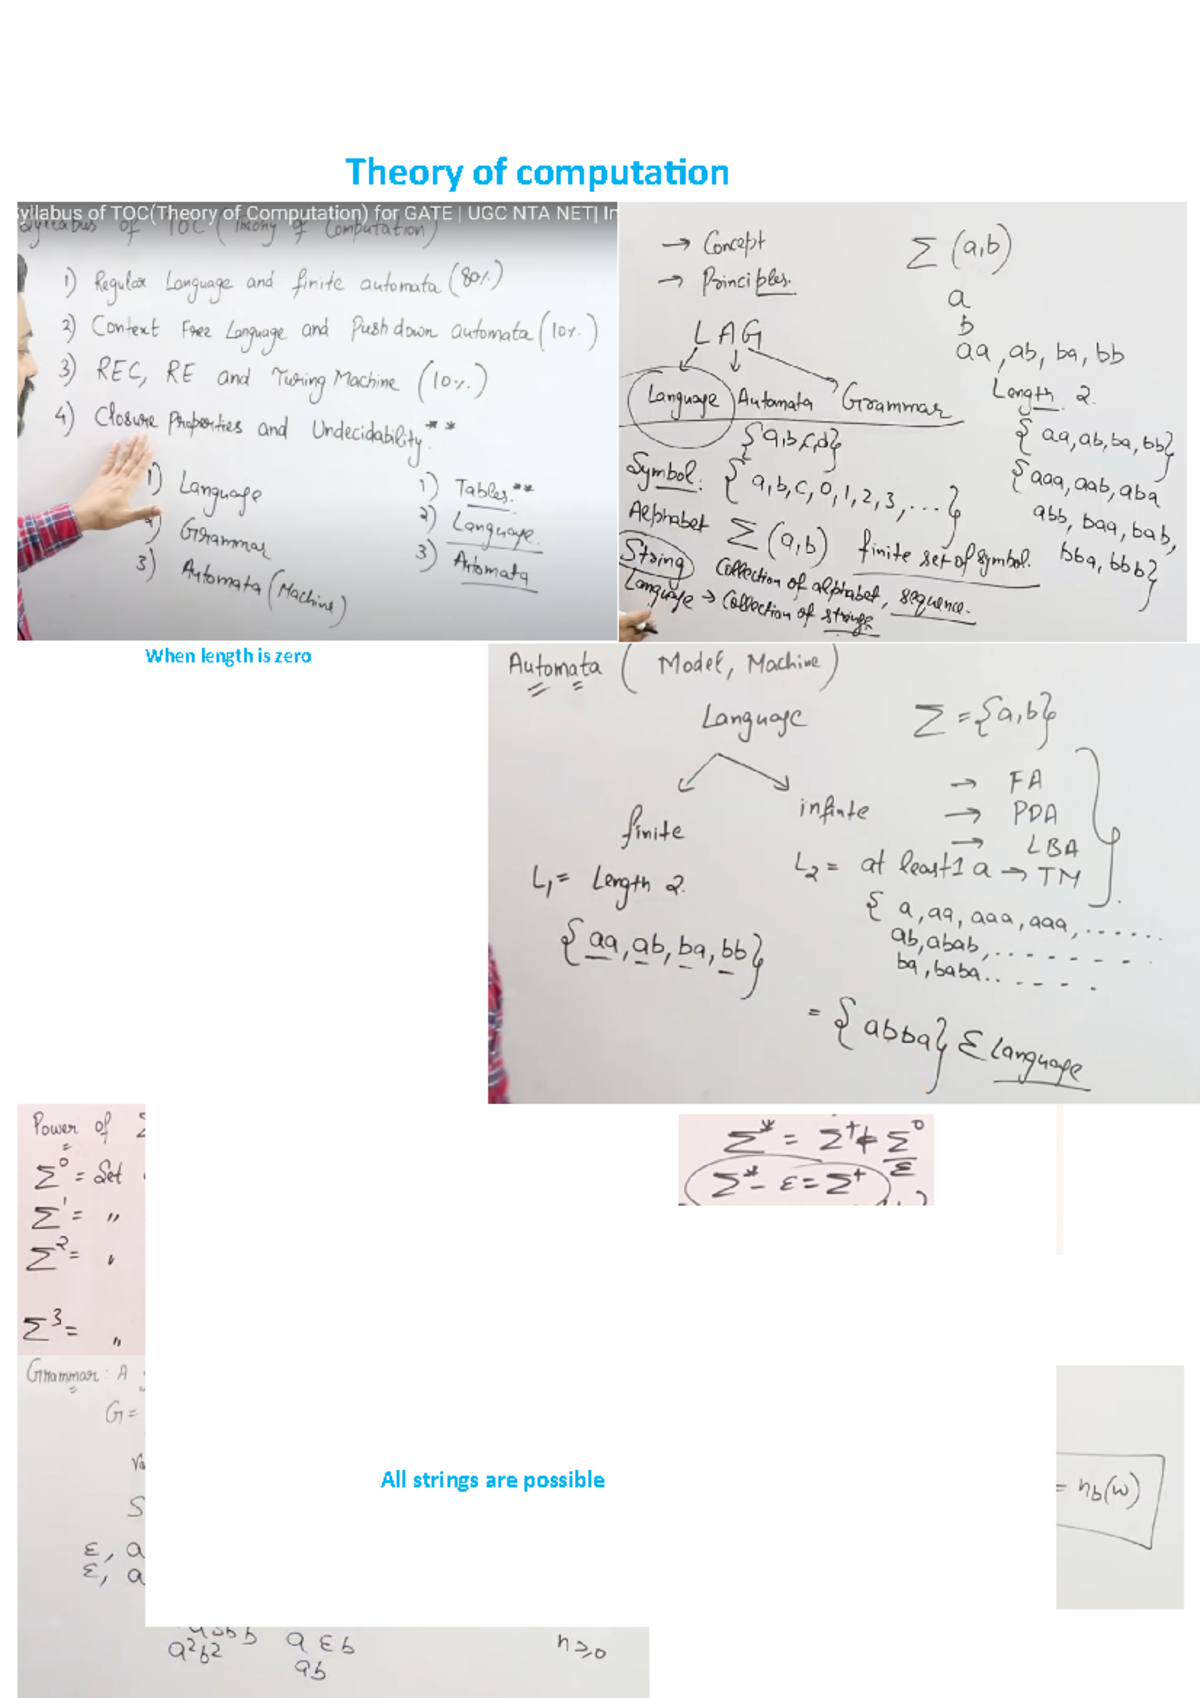 Theory of computation
Syllabus of TOC(Theory of Computation) for GATE | UGC NTA NET| In
Syllabus of TOC (Theory of Computation)
1) Regular Language and finite automata (80%)
2) Context Free Language and Pushdown automata (10%)
3) REC, RE and Turing Machine (10%)
4) Closure Properties and Undecidability **
1) Language
2) Grammar
3) Automata (Machine)
1) Tables **
2) Language
3) Automata
→ Concept
→ Principles.
LAG
Language Automata Grammar
{a,b,c,d}
Symbol: {a,b,c,0,1,2,3,....}
Alphabet Σ(a,b) finite set of symbol.
String Collection of alphabet, sequence.
Language → Collection of strings
Σ (a,b)
a
b
aa, ab, ba, bb
Length 2.
{aa,ab,ba,bb}
{aaa, aab, aba
abb, baa, bab,
bba, bbb}
When length is zero
Automata (Model, Machine)
Language
Σ = {a,b}
finite
infinite
→ FA
→ PDA
→ LBA
→ TM
L1 = Length 2.
{aa,ab,ba,bb}
L2 = at least 1 a
{a, aa, aaa, aaa, ......
ab, abab, .......
ba, baba.......
= {abba} Ɛ Language
Power of Σ
Σ⁰ = Set
Σ¹ = "
Σ² = "
Σ³ = "
Σ* = Σ⁺ + Σ⁰
ε
Σ* - ε = Σ⁺
Grammar: A
G =
S
ε, a
ε, a
All strings are possible
= nb(w)
a²b² a ε b
ab
n≥0